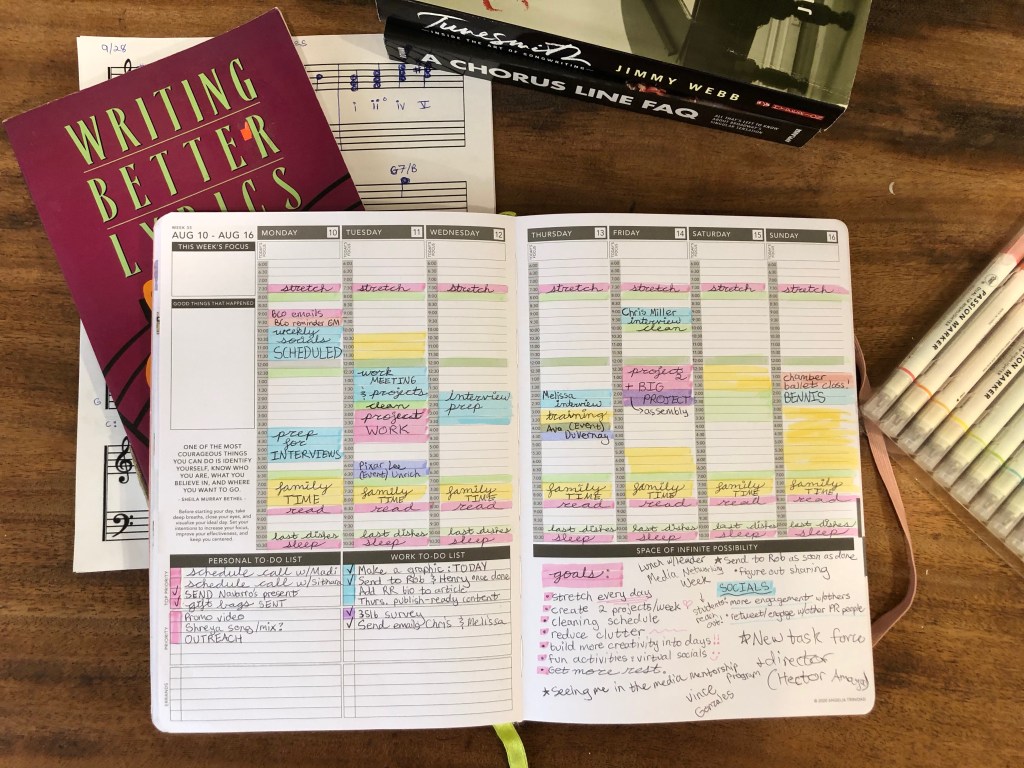 9/28
i ii° iv V
G7/B
WRITING
BETTER
LYRICS
Tunesmith
INSIDE THE ART OF SONGWRITING
JIMMY WEBB
A CHORUS LINE FAQ
ALL THAT'S LEFT TO KNOW
ABOUT BROADWAY'S
SINGULAR SENSATION
PASSION MARKER
PASSION MARKER
AUG 10 - AUG 16
THIS WEEK'S FOCUS
GOOD THINGS THAT HAPPENED
ONE OF THE MOST
COURAGEOUS THINGS
YOU CAN DO IS IDENTIFY
YOURSELF, KNOW WHO
YOU ARE, WHAT YOU
BELIEVE IN, AND WHERE
YOU WANT TO GO.
- SHEILA MURRAY BETHEL -
Before starting your day, take
deep breaths, close your eyes, and
visualize your ideal day. Set your
intentions to increase your focus,
improve your effectiveness, and
keep you centered.
MONDAY 10
stretch
BCO emails
BCO reminder GM
weekly
socials
SCHEDULED
prep
for
INTERVIEWS
family
TIME
read
last dishes
sleep
TUESDAY 11
stretch
work
MEETING
& projects
clean
project
WORK
Pixar Lee
(Event) Unrich
family
TIME
read
last dishes
sleep
WEDNESDAY 12
stretch
interview
prep
family
TIME
read
last dishes
sleep
THURSDAY 13
stretch
Melissa
interview
training
Ava (Event)
DuVernay
family
TIME
read
last dishes
sleep
FRIDAY 14
stretch
Chris Miller
interview
clean
project 2
+ BIG
PROJECT
assembly
family
TIME
read
last dishes
sleep
SATURDAY 15
stretch
family
TIME
read
last dishes
sleep
SUNDAY 16
stretch
chamber
ballets class!
BENNIS
family
TIME
read
last dishes
sleep
PERSONAL TO-DO LIST
TOP PRIORITY
schedule call w/Madi
schedule call w/
SEND Navarro's present
gift bags SENT
PRIORITY
Promo video
Shreya song/mix?
OUTREACH
ERRANDS
WORK TO-DO LIST
Make a graphic: TODAY
Send to Rob & Henry once done
Add RR bio to article
Thurs. publish-ready content
35lt survey
Send emails Chris & Melissa
SPACE OF INFINITE POSSIBILITY
goals:
stretch every day
create 2 projects/week
cleaning schedule
reduce clutter
build more creativity into days!!
fun activities: virtual socials
Get more rest.
*Seeing me in the media mentorship
program
Vince
Gonzales
Lunch w/leader
Media Networking
Week
*Send to Rob as soon as done
figure out sharing
SOCIALS
students
reach
out!
more engagement w/others
retweet/engage w/other PR people
*New task force
director
(Hector Amaya)